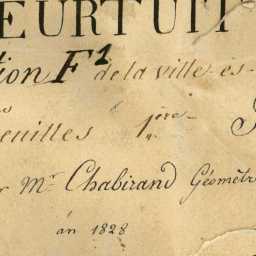 EURTUIT
ion F¹ de la ville es
euilles 1ère
Mr Chabirand Géomètr
an 1828